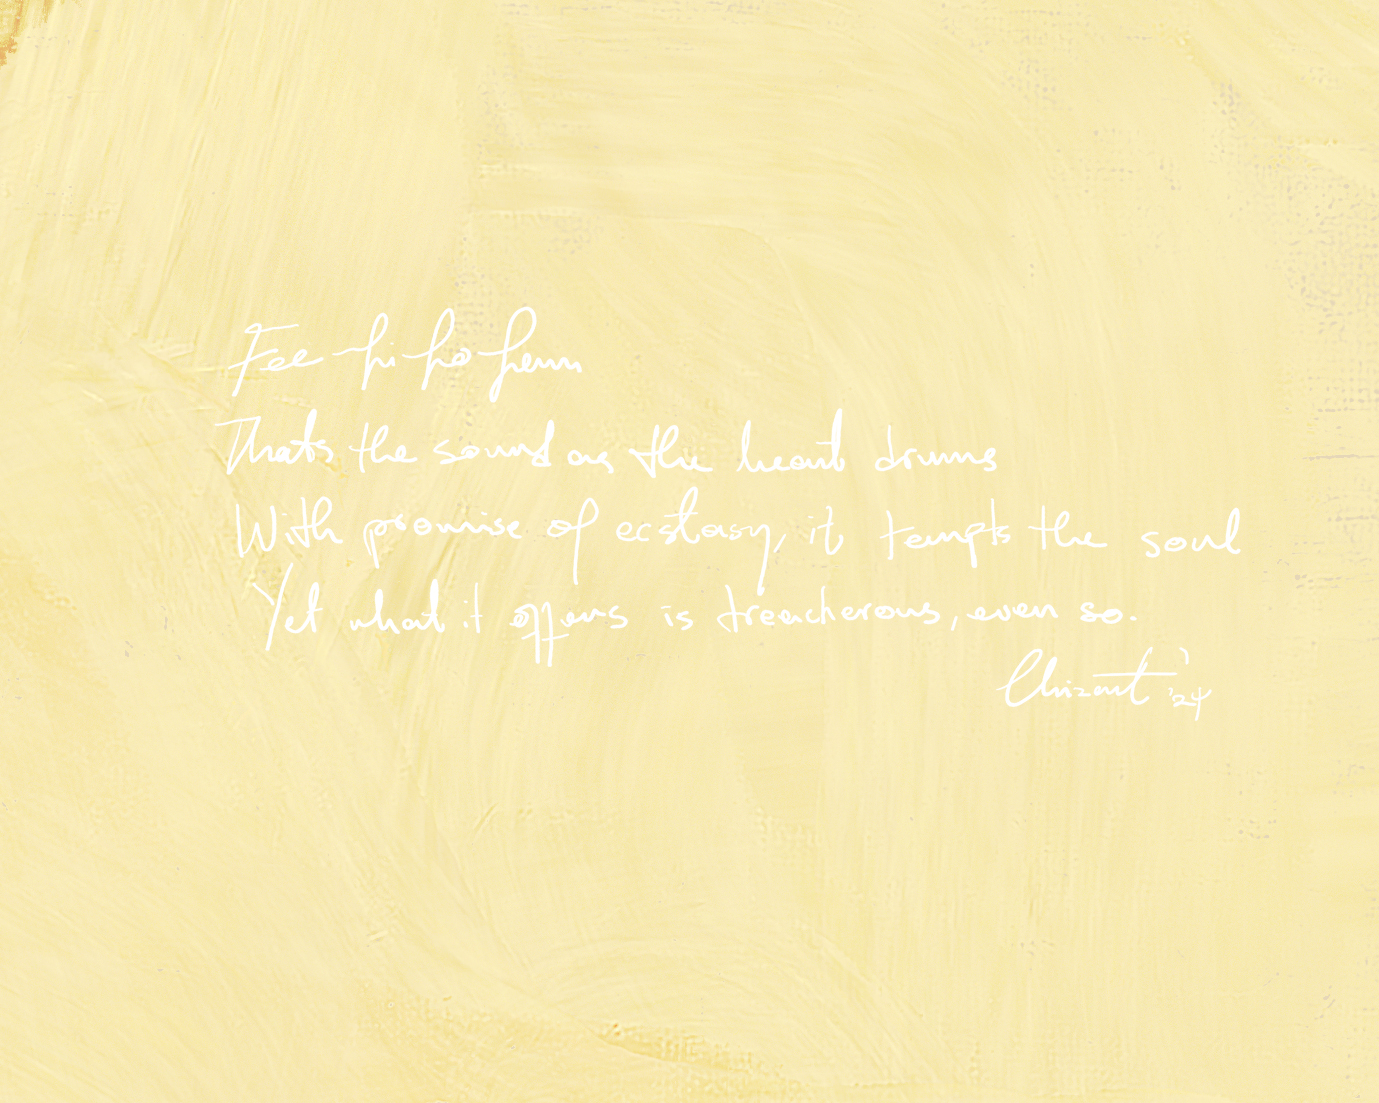 Fee fi fo fum
Thats the sound as the heart drums
With promise of ecstasy, it tempts the soul
Yet what it offers is treacherous, even so.
'24